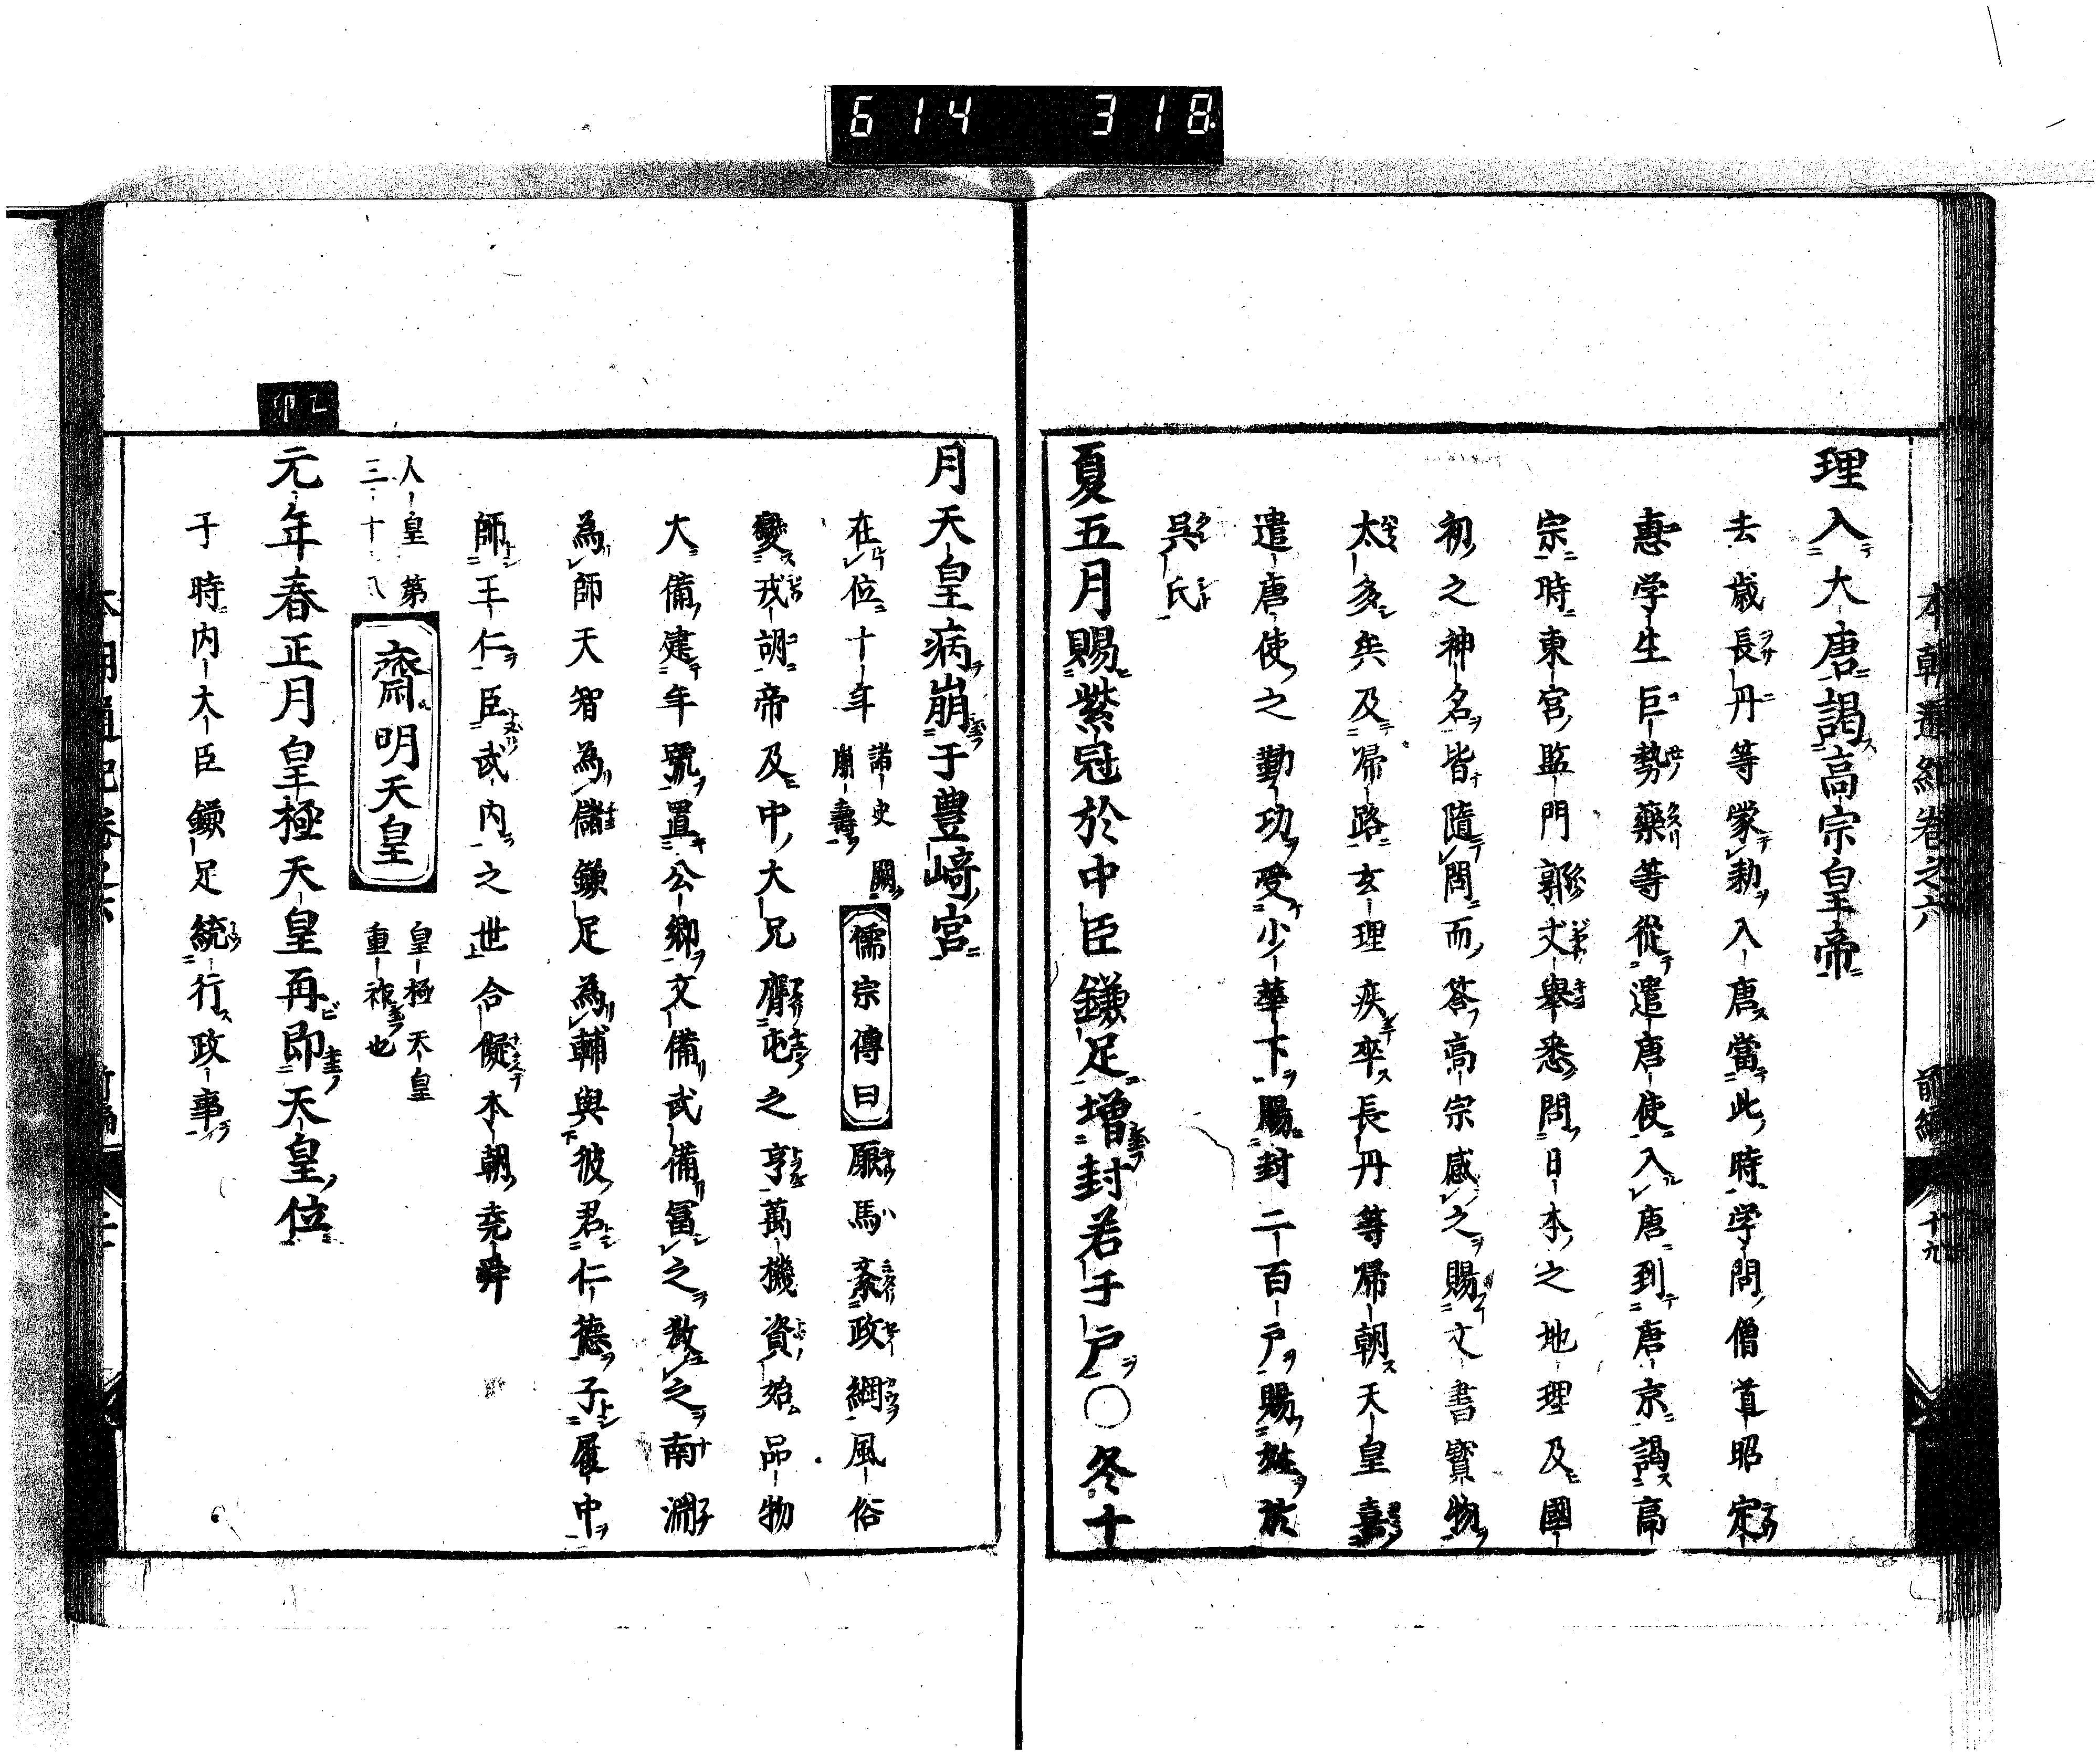 614 318
本朝通紀卷之六 前編 十九
理入大唐謁高宗皇帝
去歳長丹等蒙勅入唐當此時学問僧道昭定
惠学生巨勢藥等從遣唐使入唐到唐京謁高
宗時東宮監門郭丈舉悉問日本之地理及國
初之神名皆隨問而答高宗感之賜文書寳物
太多矣及帰路玄理疾卒長丹等帰朝天皇嘉
遣唐使之勤功受少華下賜封二百戸賜姓於
呉氏
夏五月賜紫冠於中臣鎌足增封若于戸○冬十
月天皇病崩于豊﨑宮
在位十年 諸史闕崩壽 儒宗傳曰 厩馬紊政網風俗
變戎胡帝及中大兄膺屯之亨萬機資始品物
大備建年號置公卿文備武備冨之教之南淵
為師天智為儲鎌足為輔與彼君仁德子展中
師王仁臣武内之世合儗本朝堯舜
人皇第三十八 齋明天皇 皇極天皇重祚也
乙卯
元年春正月皇極天皇再即天皇位
于時内大臣鎌足統行政事